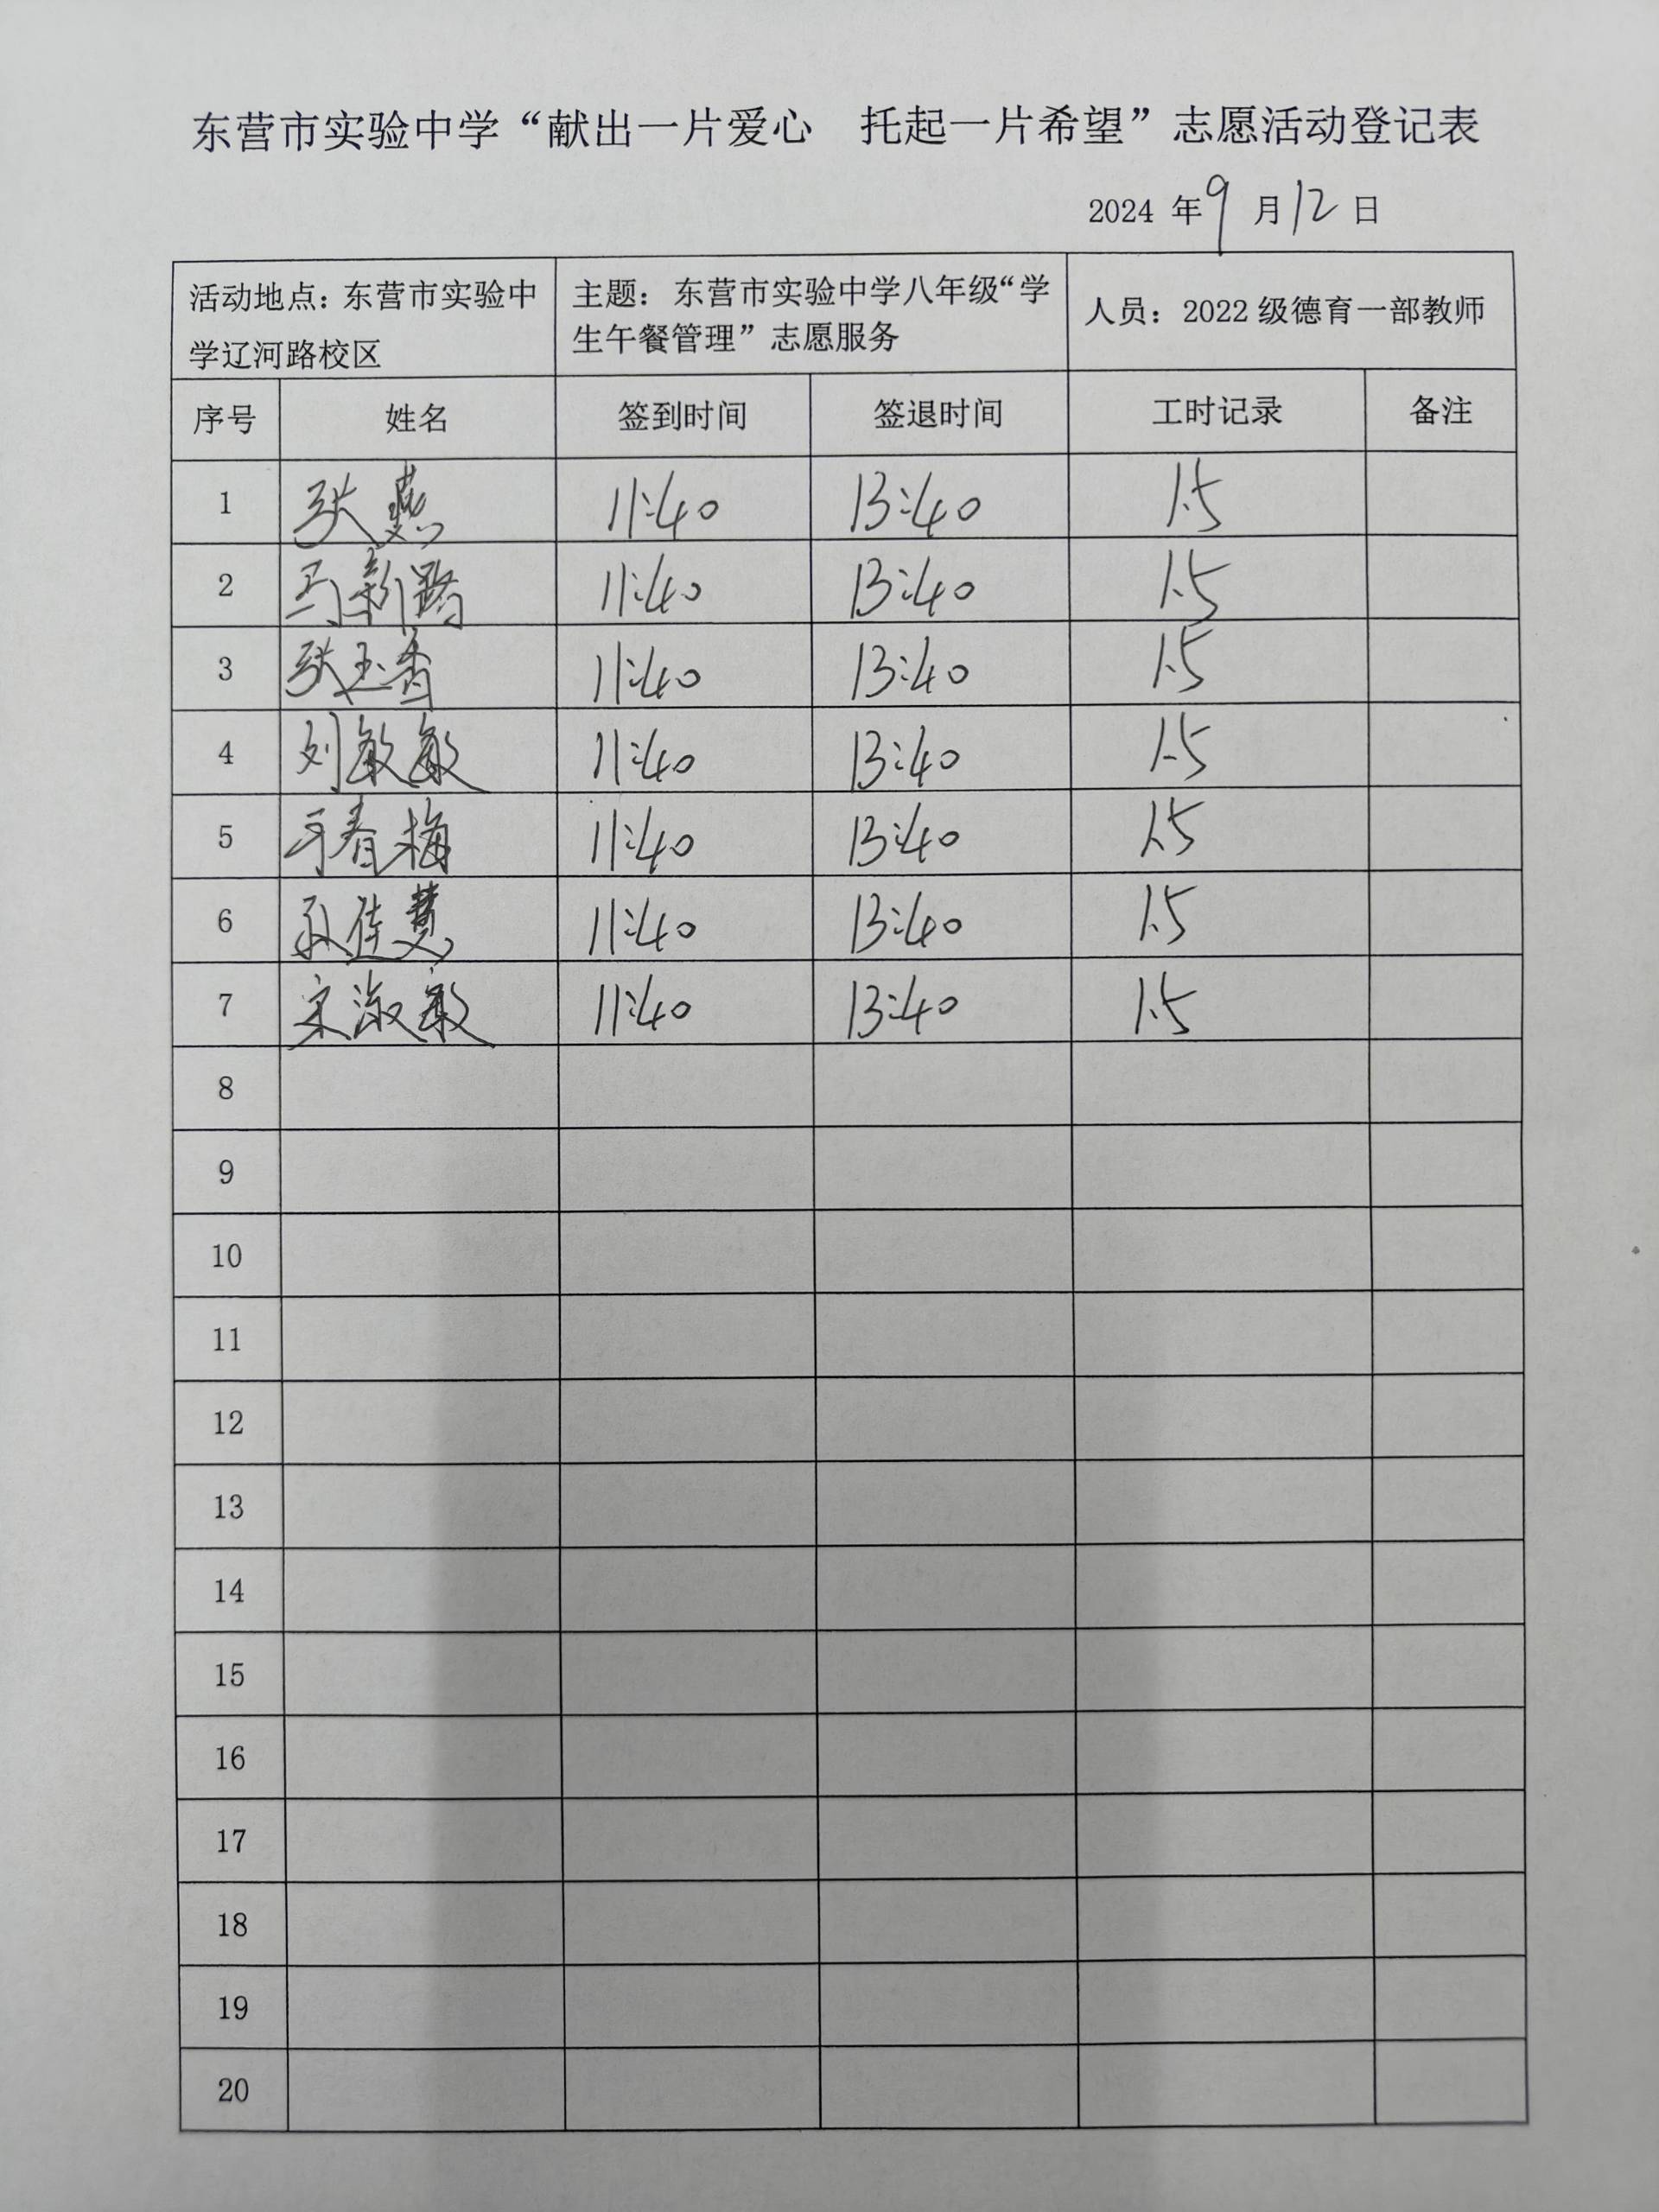 东营市实验中学“献出一片爱心 托起一片希望”志愿活动登记表
2024 年 9 月 12 日
活动地点：东营市实验中
学辽河路校区
主题：东营市实验中学八年级“学
生午餐管理”志愿服务
人员：2022 级德育一部教师
序号 姓名 签到时间 签退时间 工时记录 备注
1 张燕 11:40 13:40 1.5
2 马新路 11:40 13:40 1.5
3 张玉香 11:40 13:40 1.5
4 刘敏敏 11:40 13:40 1.5
5 于春梅 11:40 13:40 1.5
6 孙佳慧 11:40 13:40 1.5
7 宋淑敏 11:40 13:40 1.5
8
9
10
11
12
13
14
15
16
17
18
19
20